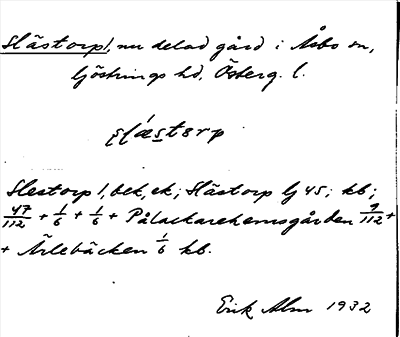 Slästorp 1, nu delad gård i Åsbo sn,
Göstrings hd, Österg. l.
slæstərp
Slestorp 1, bck, ek; Slästorp Gj 45; kb;
47/112 + 1/6 + 1/6 + Pålackarehemsgården 9/112 +
+ Ärlebäcken 1/6 kb.
Erik Alm 1932